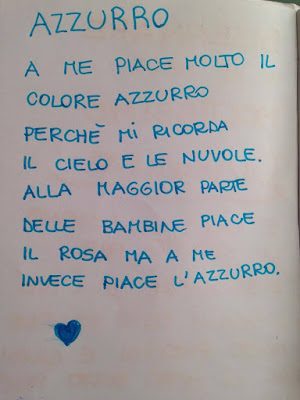 AZZURRO
A ME PIACE MOLTO IL
COLORE AZZURRO
PERCHÈ MI RICORDA
IL CIELO E LE NUVOLE.
ALLA MAGGIOR PARTE
DELLE BAMBINE PIACE
IL ROSA MA A ME
INVECE PIACE L'AZZURRO.